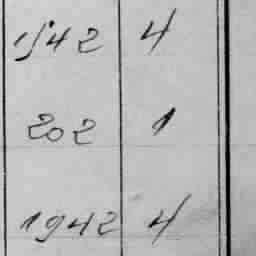 1542 4
202 1
1942 4